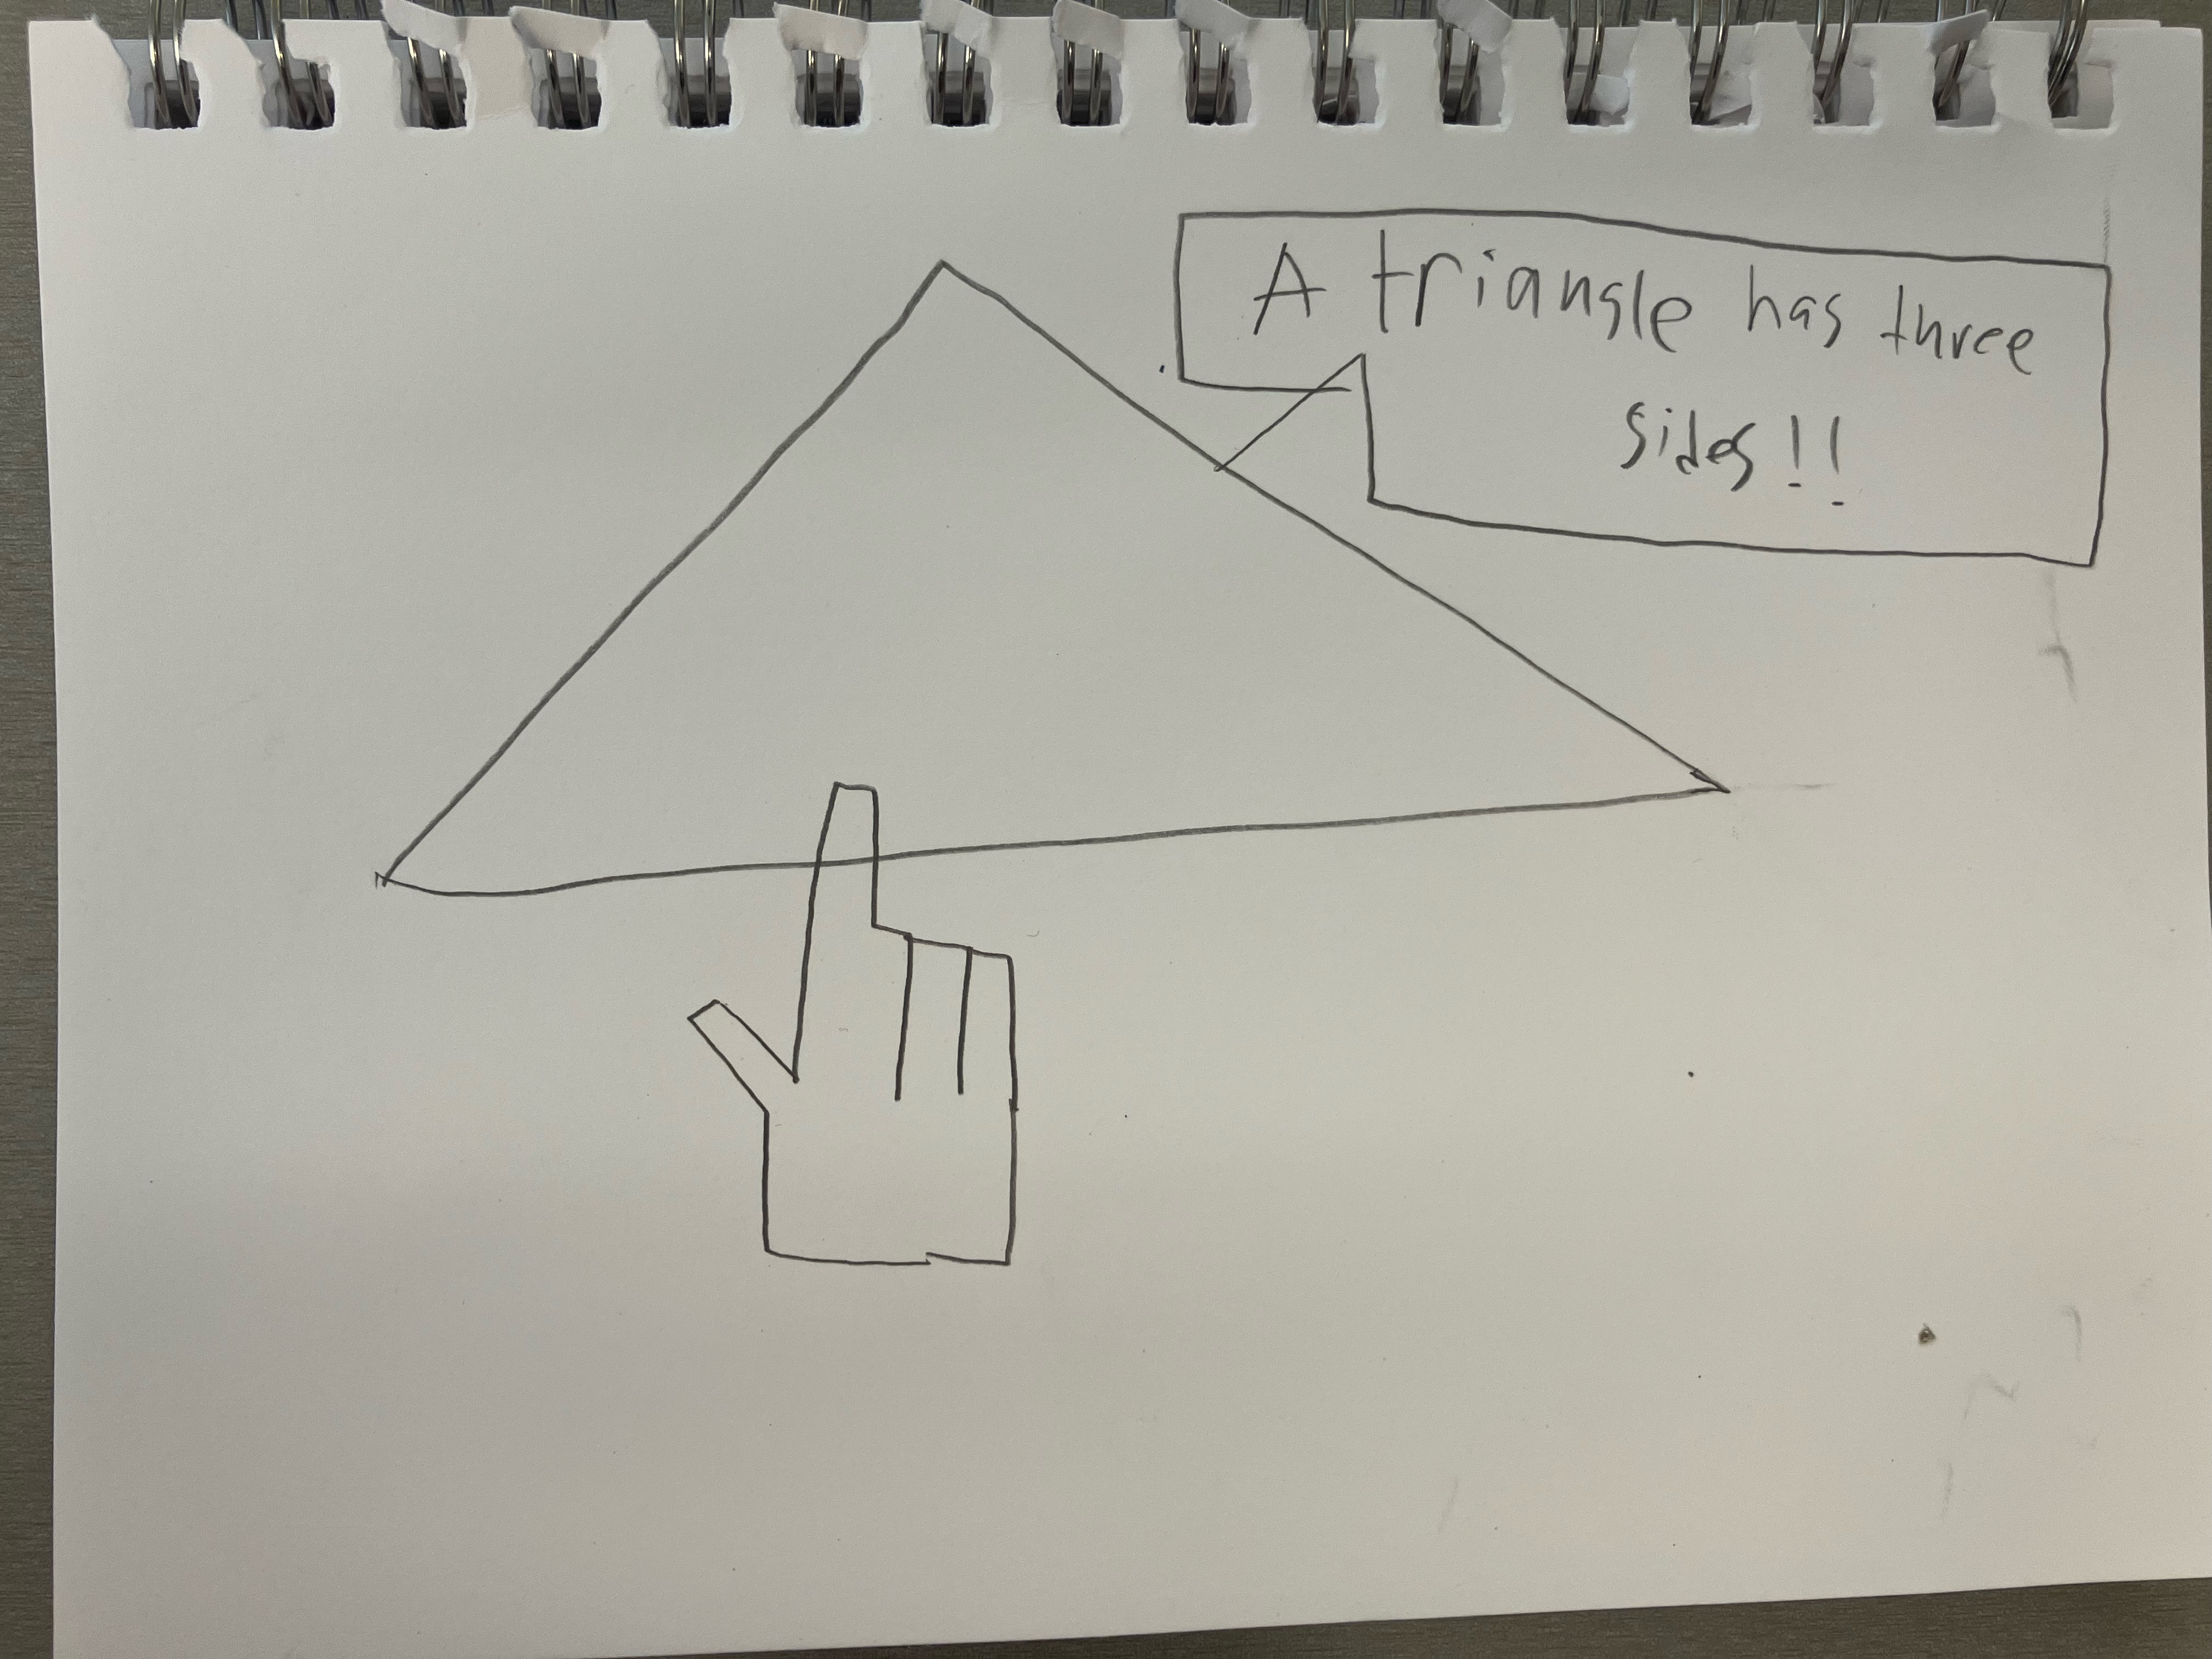 A triangle has three
sides!!